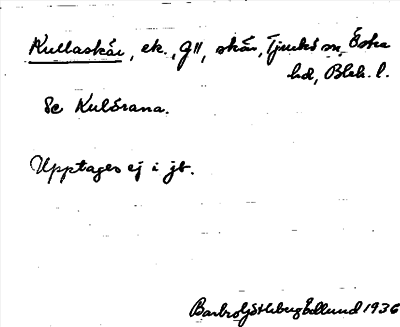 Kullaskär, ek., G11, skär, Tjurkö sn, Östra
hd, Blek. l.
Se Kulörana.
Upptages ej i jb.
Barbro Götleburg Edlund 1936